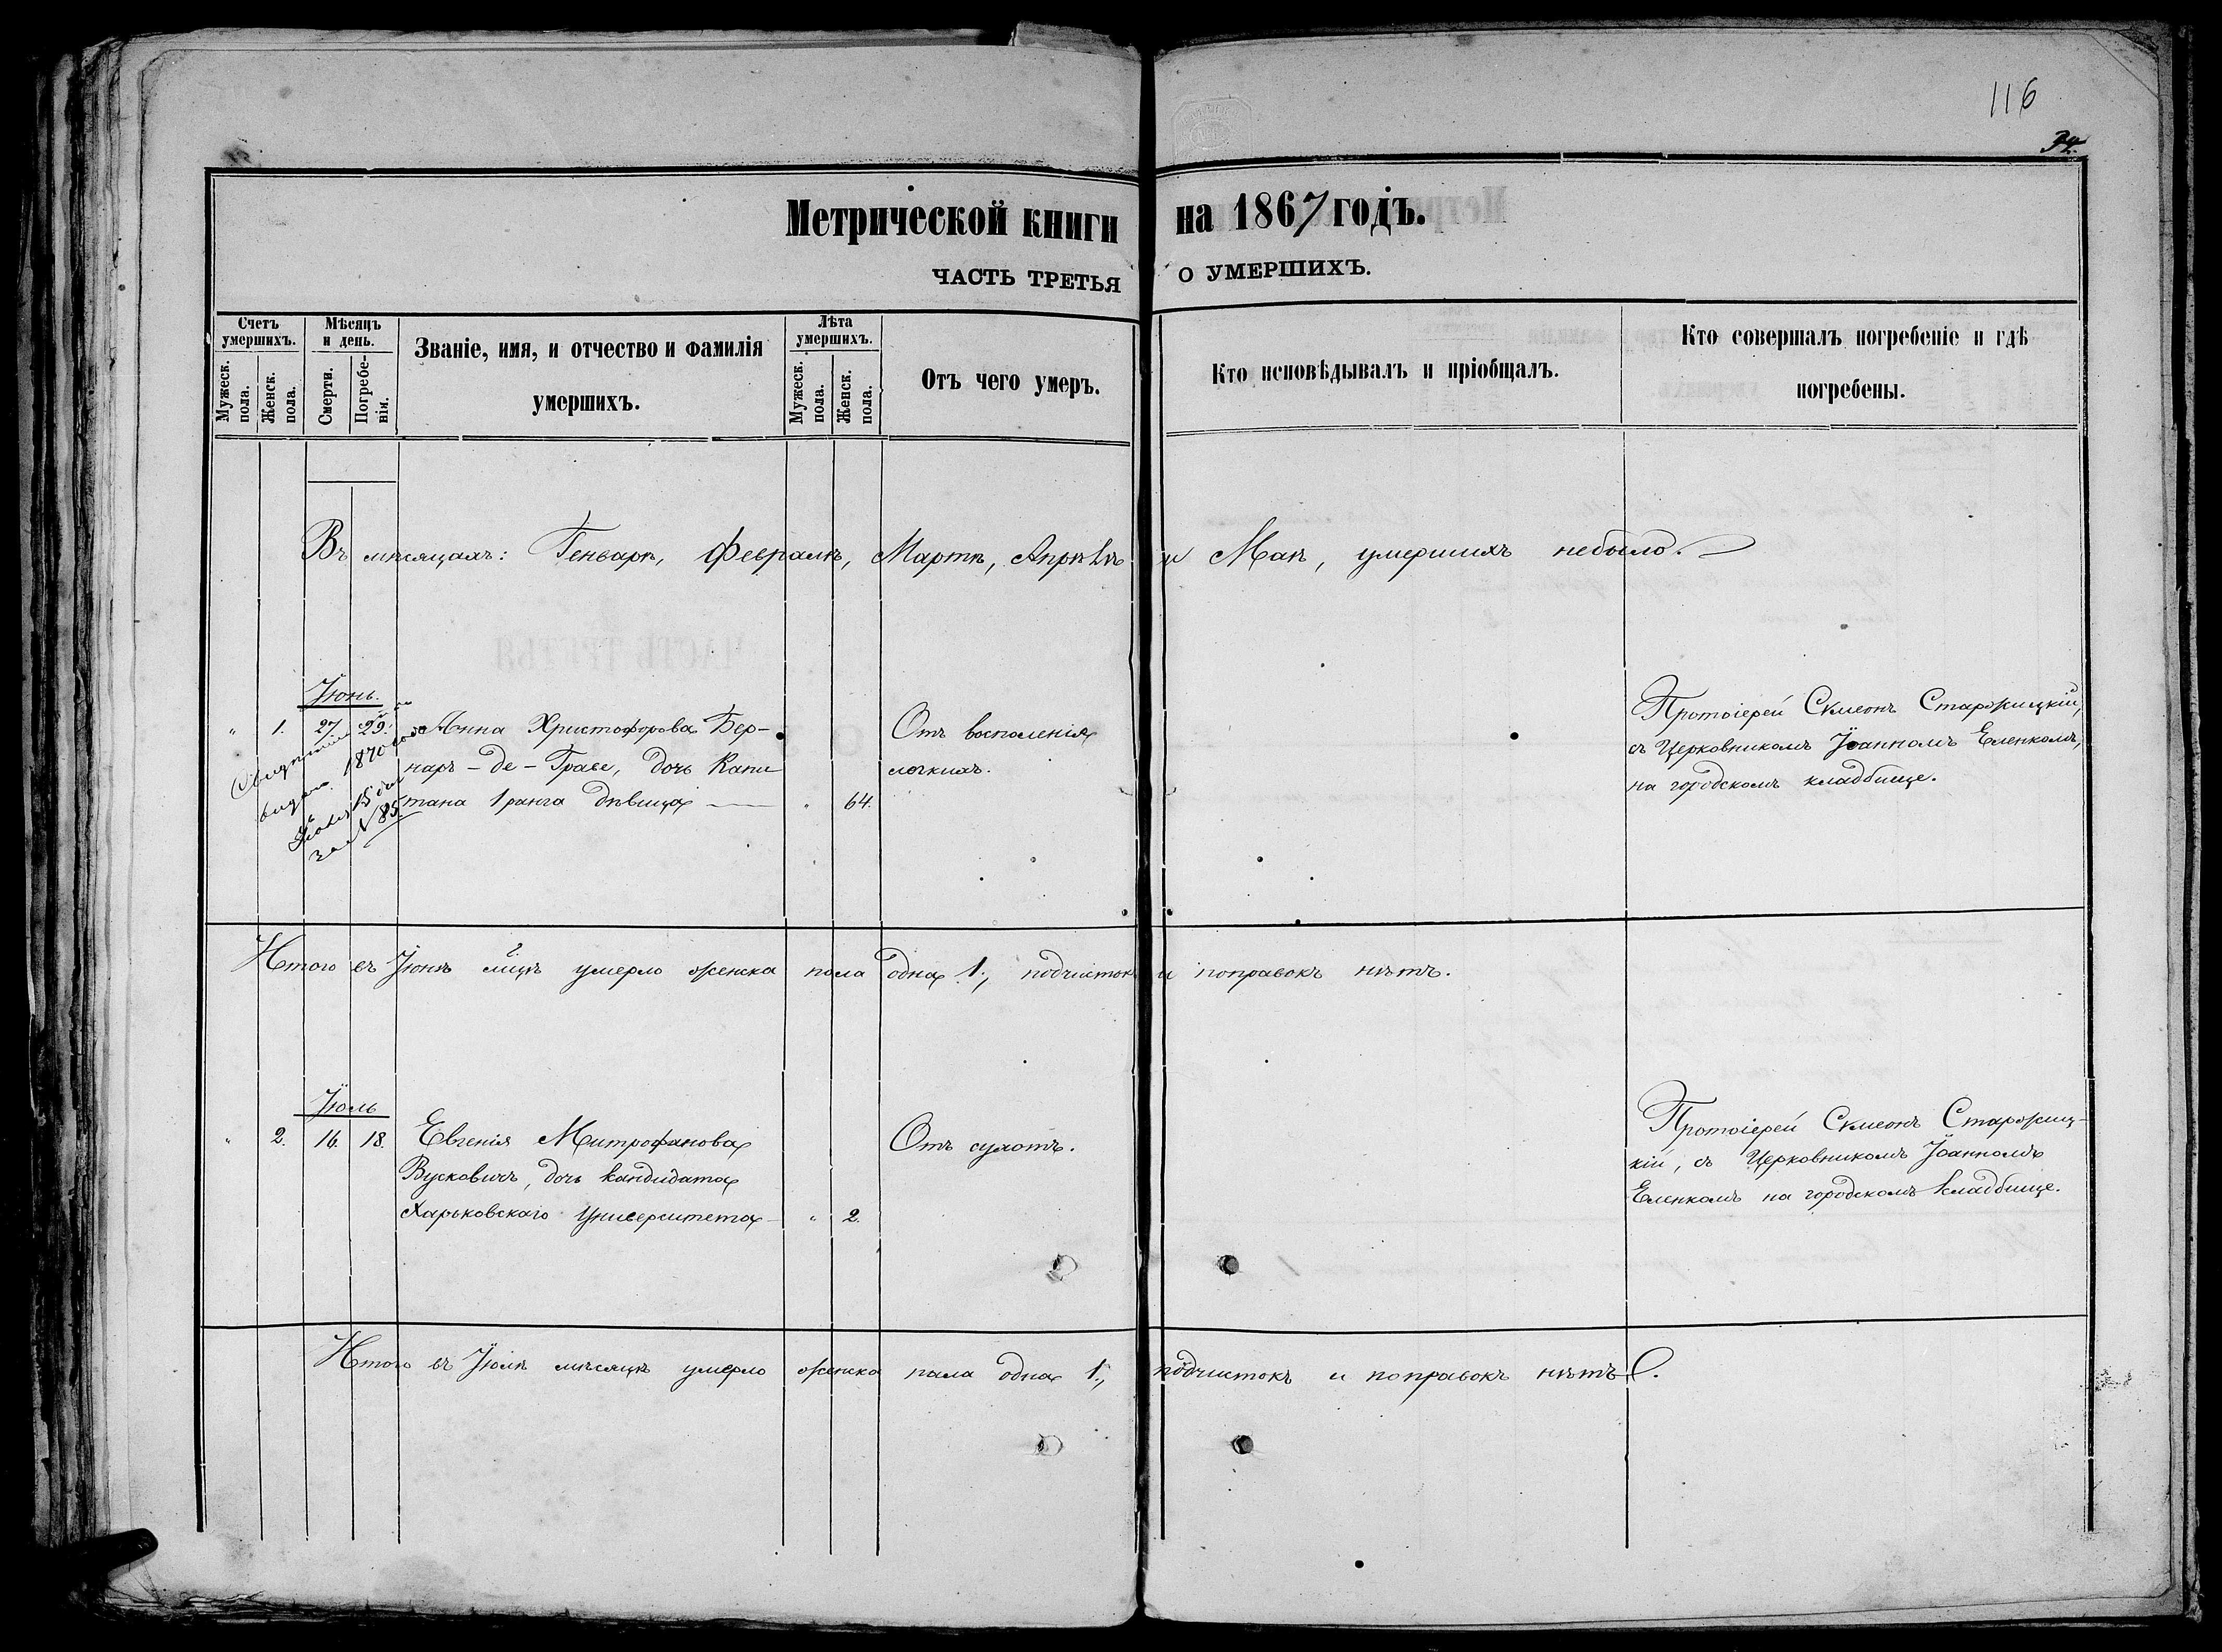 116
34.
Метрической книги на 1867 годъ.
ЧАСТЬ ТРЕТЬЯ О УМЕРШИХЪ.
Счетъ умершихъ.
Мужеск. пола.
Женск. пола.
Мѣсяцъ и день.
Смерти.
Погребенія.
Званіе, имя, и отчество и фамилія
умершихъ.
Лѣта умершихъ.
Мужеск. пола.
Женск. пола.
Отъ чего умеръ.
Кто исповѣдывалъ и пріобщалъ.
Кто совершалъ погребеніе и гдѣ
погребены.
Въ мѣсяцахъ: Генварѣ, Февралѣ, Мартѣ, Апрѣлѣ и Маѣ, умершихъ небыло.
Іюнь.
" 1. 27. 29. Анна Христофорова Бер-
наръ-де-Граве, дочь Капи
тана 1 ранга дѣвица — " 64.
Отъ воспоменія
легкихъ.
Протоіерей Сѵмеонъ Старожицкій,
съ Церковникомъ Іоанномъ Еленкомъ,
на городскомъ кладбище.
выдано 1870 года
15 дня
за № 85.
Итого въ Іюнѣ м-цѣ умерло женска пола одна 1., подчистокъ и поправокъ нѣтъ.
Іюль
" 2. 16. 18. Евгенія Митрофанова
Вусковичъ, дочь кандидата
Харьковскаго Университета — " 2.
Отъ сухотъ.
Протоіерей Сѵмеонъ Старожиц-
кій, съ Церковникомъ Іоанномъ
Еленкомъ на городскомъ кладбище.
Итого въ Іюлѣ мѣсяцѣ умерло женска пала одна 1., подчистокъ и поправокъ нѣтъ.